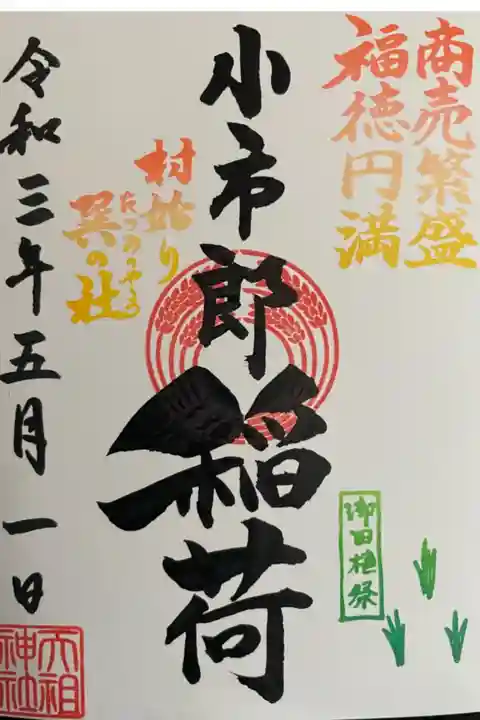 商売繁盛
福徳円満
小市郎稲荷
村始り
巽の社
たつみのやしろ
御田植祭
令和三年五月一日
大祖
神社